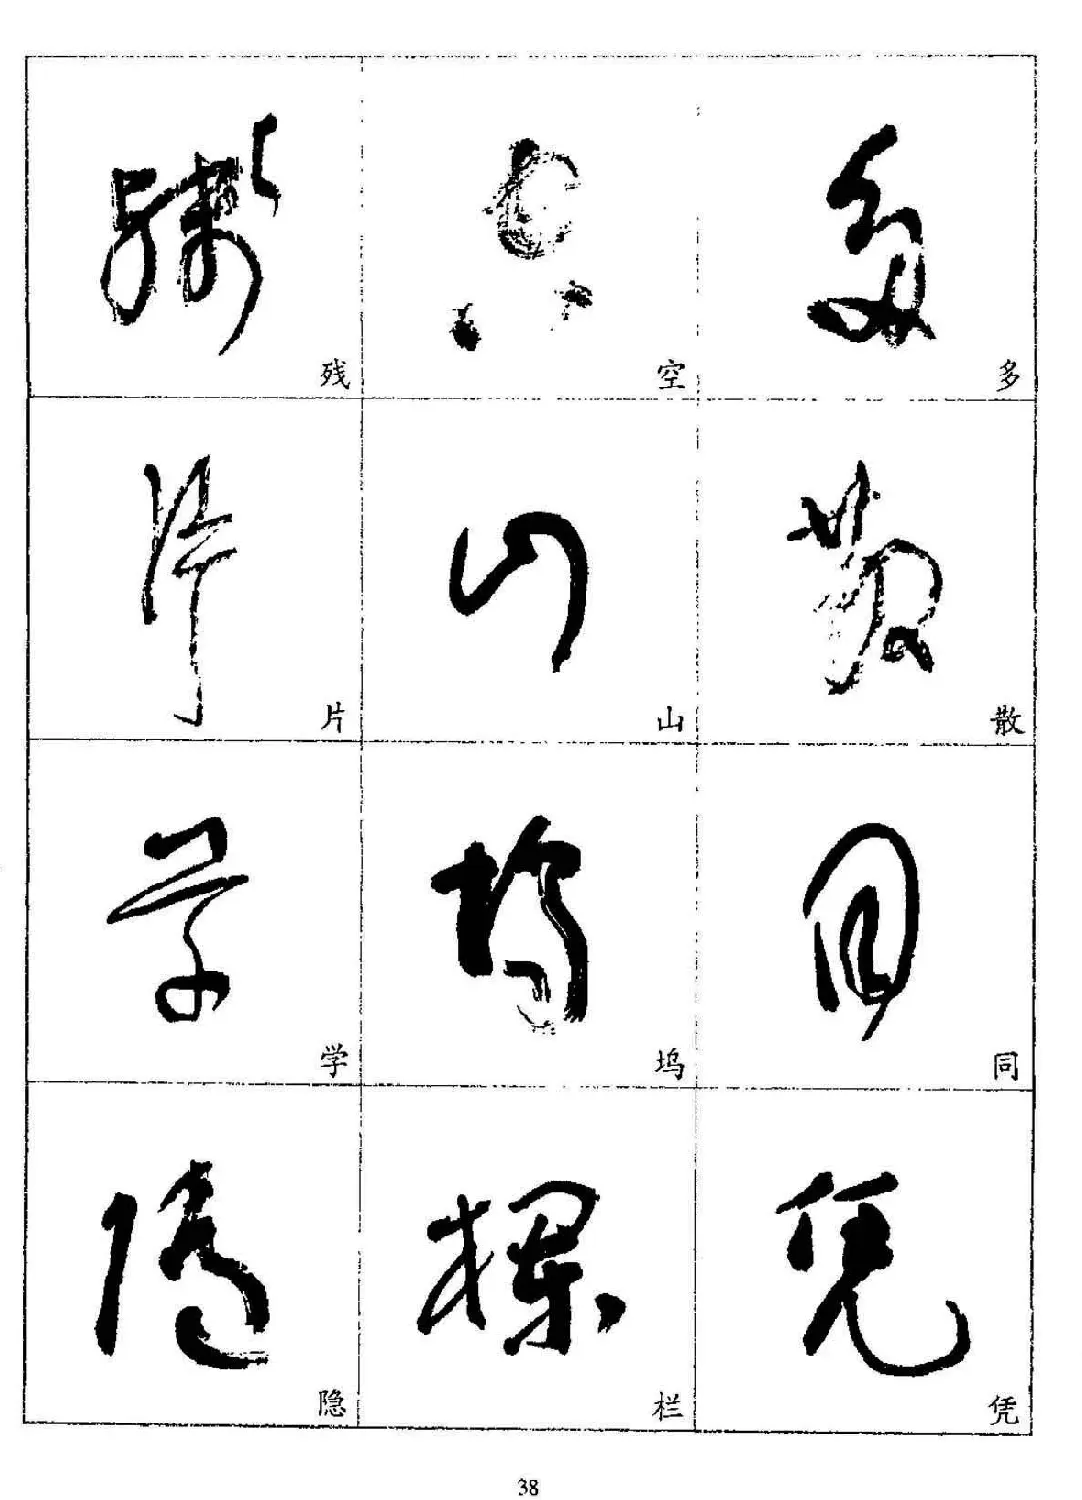 残 空 多
片 山 散
学 坞 同
隐 栏 凭
38